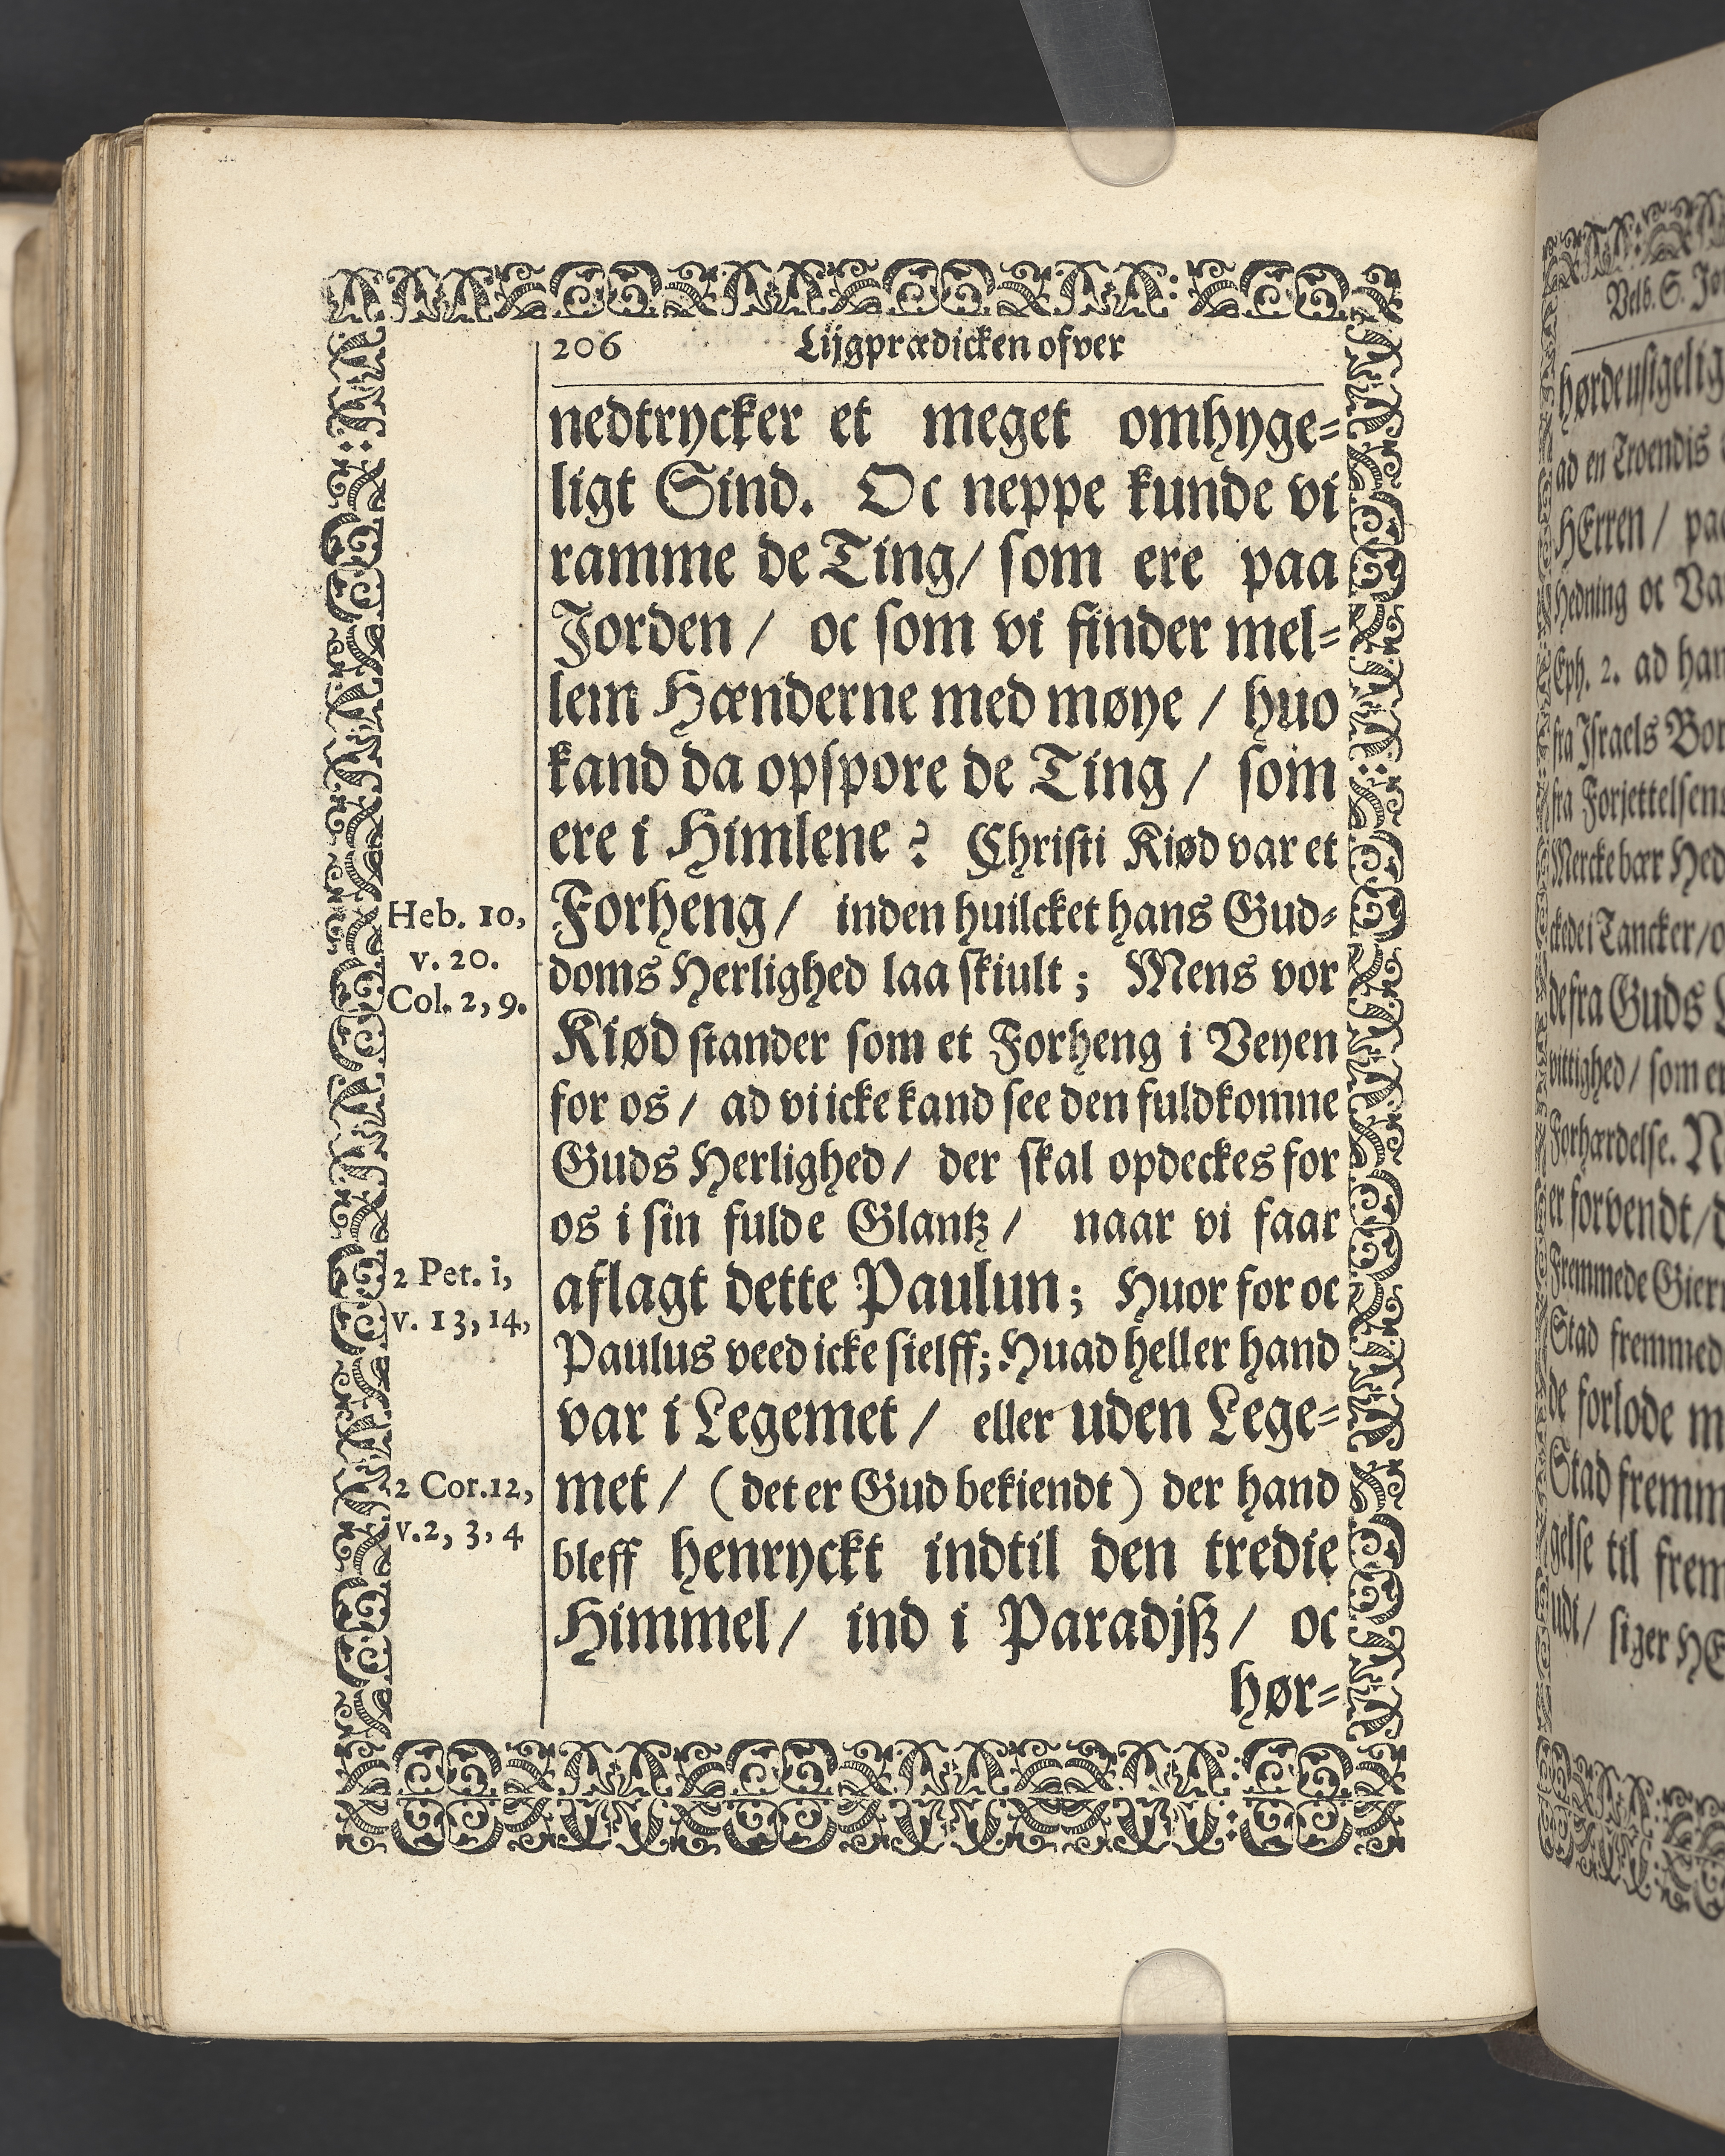 206 Lijgprædicken ofver
nedtrycker et meget omhyge=
ligt Sind. Oc neppe kunde vi
ramme de Ting/ som ere paa
Jorden / oc som vi finder mel=
lem Hænderne med møye / huo
kand da opspore de Ting / som
ere i Himlene ? Christi Kiød var et
Forheng / inden huilcket hans Gud=
doms Herlighed laa skiult ; Mens vor
Kiød stander som et Forheng i Veyen
for os / ad vi icke kand see den fuldkomne
Guds Herlighed / der skal opdeckes for
os i sin fulde Glantz / naar vi faar
aflagt dette Paulun ; Huor for oc
Paulus veed icke sielff; Huad heller hand
var i Legemet / eller uden Lege=
met / ( det er Gud bekiendt ) der hand
bleff henryckt indtil den tredie
Himmel / ind i Paradjß / oc
hør=
Heb. 10,
v. 20.
Col. 2, 9.
2 Pet. i,
v. 13, 14,
2 Cor. 12,
v. 2, 3, 4
Velb. S. Jo
ad en Troendis
HErren / paa
Hedning oc Va
Eph. 2. ad han
fra Israels Bor
fra Forjettelsens
Mercke bær Hed
de fra Guds
vittighed / som er
Forhærdelse. N
er forvendt / d
Fremmede Giern
Stad fremmed
de forlode m
Stad fremm
gelse til frem
udi / siger HE